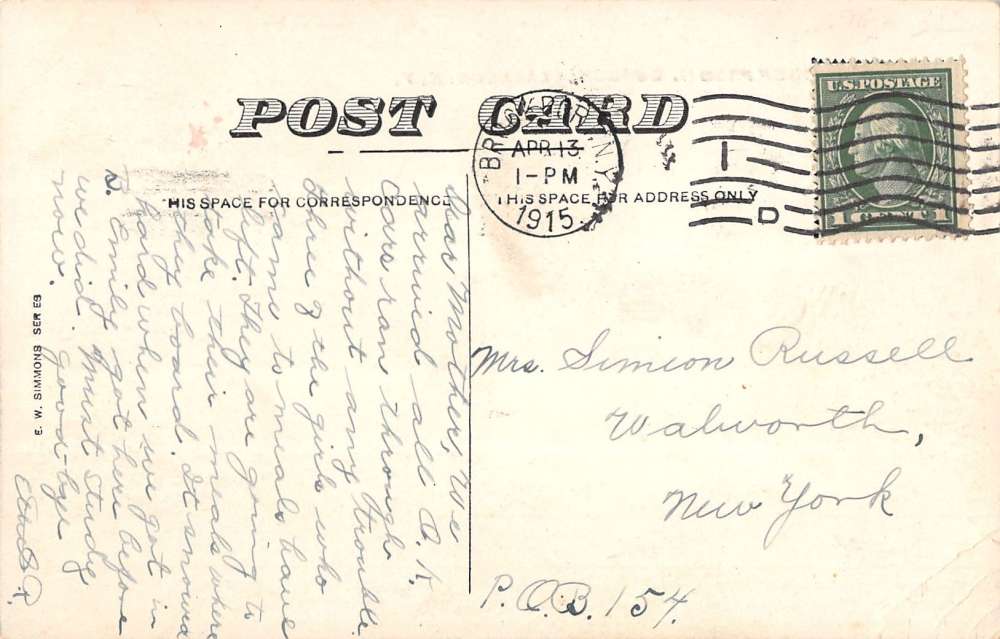 POST CARD
HIS SPACE FOR CORRESPONDENCE
THIS SPACE FOR ADDRESS ONLY
BROCKPORT N.Y.
APR 13
1-PM
1915
1
D
U.S. POSTAGE
1 CENT 1
E. W. SIMMONS SERIES
Dear Mother, We
arrived all O. K.
Cars ran through
without any trouble.
three of the girls who
came to meals have
left. They are going to
take their meals where
they board. It snowed
hard when we got in
S. Emily got here before
we did. Must study
now. good-bye
Mrs. Simeon Russell
Walworth,
New York
P.O.B. 154.